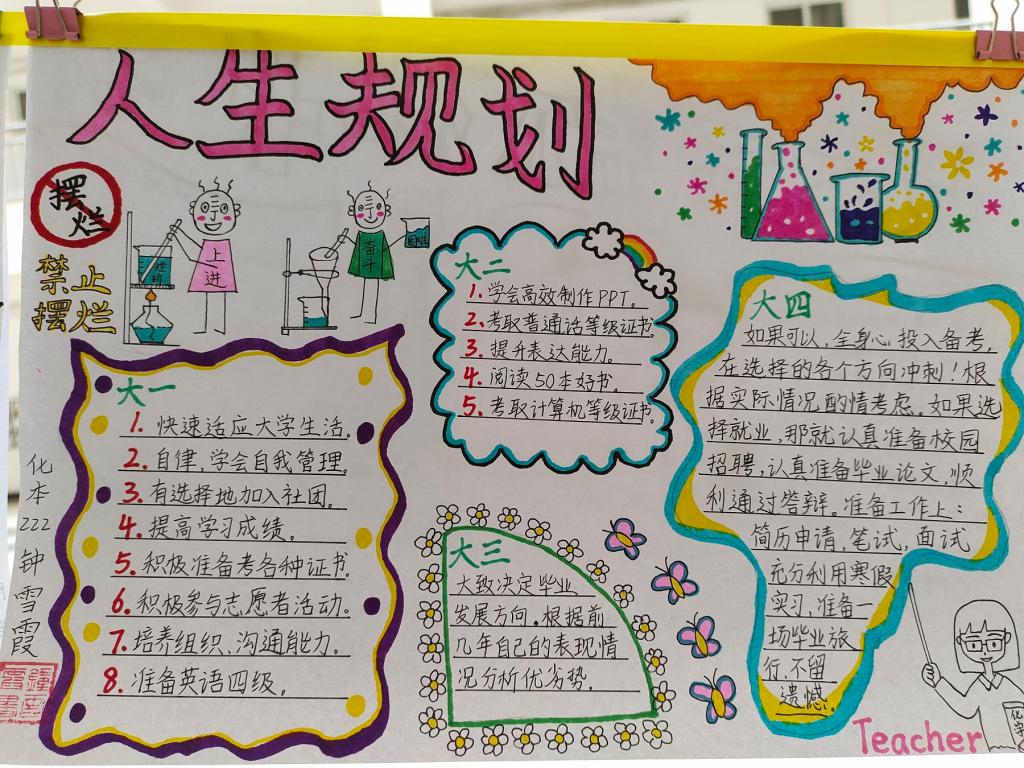 人生规划
摆
烂
禁止
摆烂
上
进
奋
斗
大一
1. 快速适应大学生活。
2. 自律,学会自我管理。
3. 有选择地加入社团。
4. 提高学习成绩。
5. 积极准备考各种证书.
6. 积极参与志愿者活动。
7. 培养组织、沟通能力。
8. 准备英语四级。
大二
1. 学会高效制作PPT。
2. 考取普通话等级证书.
3. 提升表达能力。
4. 阅读50本好书.
5. 考取计算机等级证书.
大三
大致决定毕业
发展方向。根据前
几年自己的表现情
况分析优劣势。
大四
如果可以,全身心投入备考,
在选择的各个方向冲刺!根
据实际情况酌情考虑。如果选
择就业,那就认真准备校园
招聘,认真准备毕业论文,顺
利通过答辩。准备工作上:
简历申请,笔试,面试
充分利用寒假
实习,准备一
场毕业旅
行.不留
遗憾。
化
本
222
钟
雪
霞
Teacher
化
学